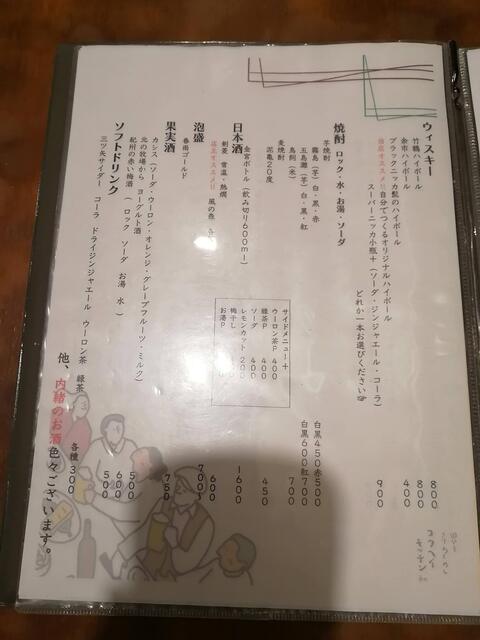 ウィスキー
竹鶴ハイボール 800
余市ハイボール 800
ブラックニッカ髭のハイボール 400
店主オススメ!!自分でつくるオリジナルハイボール
スーパーニッカ小瓶+(ソーダ・ジンジャエール・コーラ) 900
どれか一本お選びください
焼酎 ロック・水・お湯・ソーダ
芋焼酎
霧島(芋)白・黒・赤 白黒450赤500
五島灘(芋)白・黒・紅 白黒600紅700
鳥飼(米) 700
麦焼酎
泥亀20度 450
金宮ボトル(飲み切り600ml) 1600
サイドメニュー+
ウーロン茶P 400
緑茶P 400
ソーダ 400
レモンカット 200
梅干し
お湯P
日本酒
剣菱 常温・熱燗 600
店主オススメ!! 風の森 700
泡盛
春雨ゴールド 750
果実酒
カシス(ソーダ・ウーロン・オレンジ・グレープフルーツ・ミルク) 500
北の牧場から ヨーグルト酒 600
紀州の赤い梅酒 (ロック ソーダ お湯 水) 500
ソフトドリンク
三ツ矢サイダー コーラ ドライジンジャエール ウーロン茶 緑茶 各種300
他、内緒のお酒色々ございます。